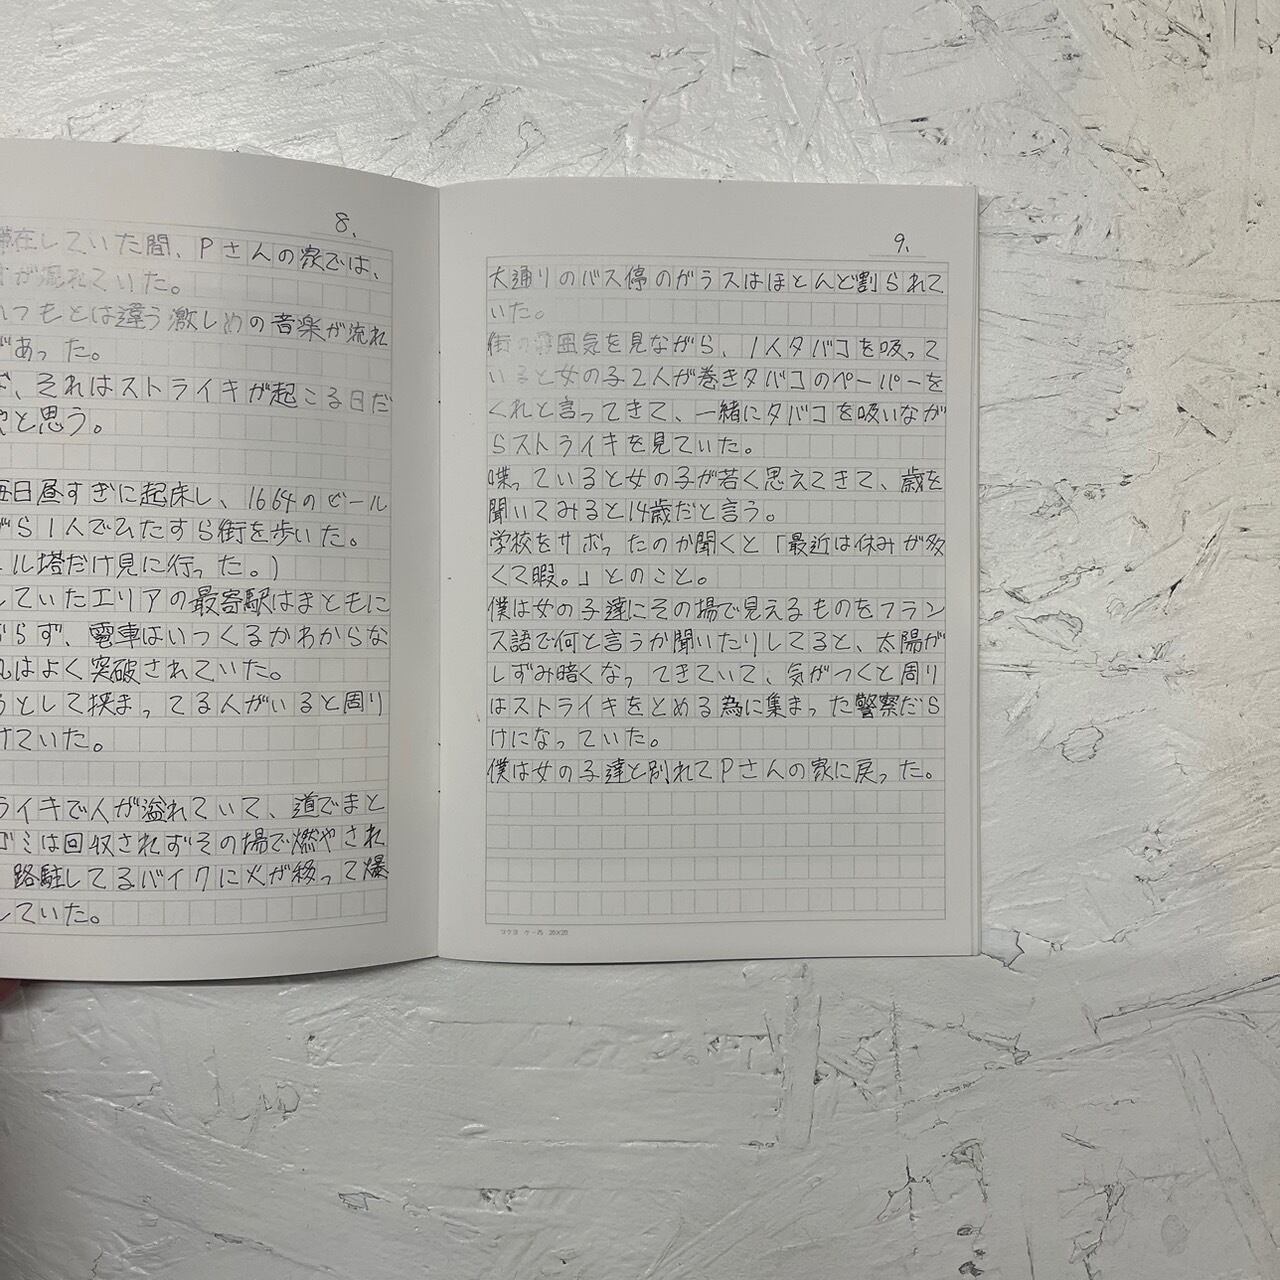 8.
滞在していた間、Pさんの家では、
が流れていた。
いつもとは違う激しめの音楽が流れ
があった。
、それはストライキが起こる日だ
と思う。
毎日昼すぎに起床し、1664のビール
がら1人でひたすら街を歩いた。
ル塔だけ見に行った。)
していたエリアの最寄駅はまともに
らず、電車はいつくるかわからな
はよく突破されていた。
うとして挟まってる人がいると周り
けていた。
ライキで人が溢れていて、道でまと
ゴミは回収されずその場で燃やされ
路駐してるバイクに火が移って爆
していた。
9.
大通りのバス停のガラスはほとんど割られて
いた。
街の雰囲気を見ながら、1人タバコを吸って
いると女の子2人が巻きタバコのペーパーを
くれと言ってきて、一緒にタバコを吸いなが
らストライキを見ていた。
喋っていると女の子が若く思えてきて、歳を
聞いてみると14歳だと言う。
学校をサボったのか聞くと「最近は休みが多
くて暇。」とのこと。
僕は女の子達にその場で見えるものをフラン
ス語で何と言うか聞いたりしてると、太陽が
しずみ暗くなってきていて、気がつくと周り
はストライキをとめる為に集まった警察だら
けになっていた。
僕は女の子達と別れてPさんの家に戻った。
コクヨ ケー75 20×20